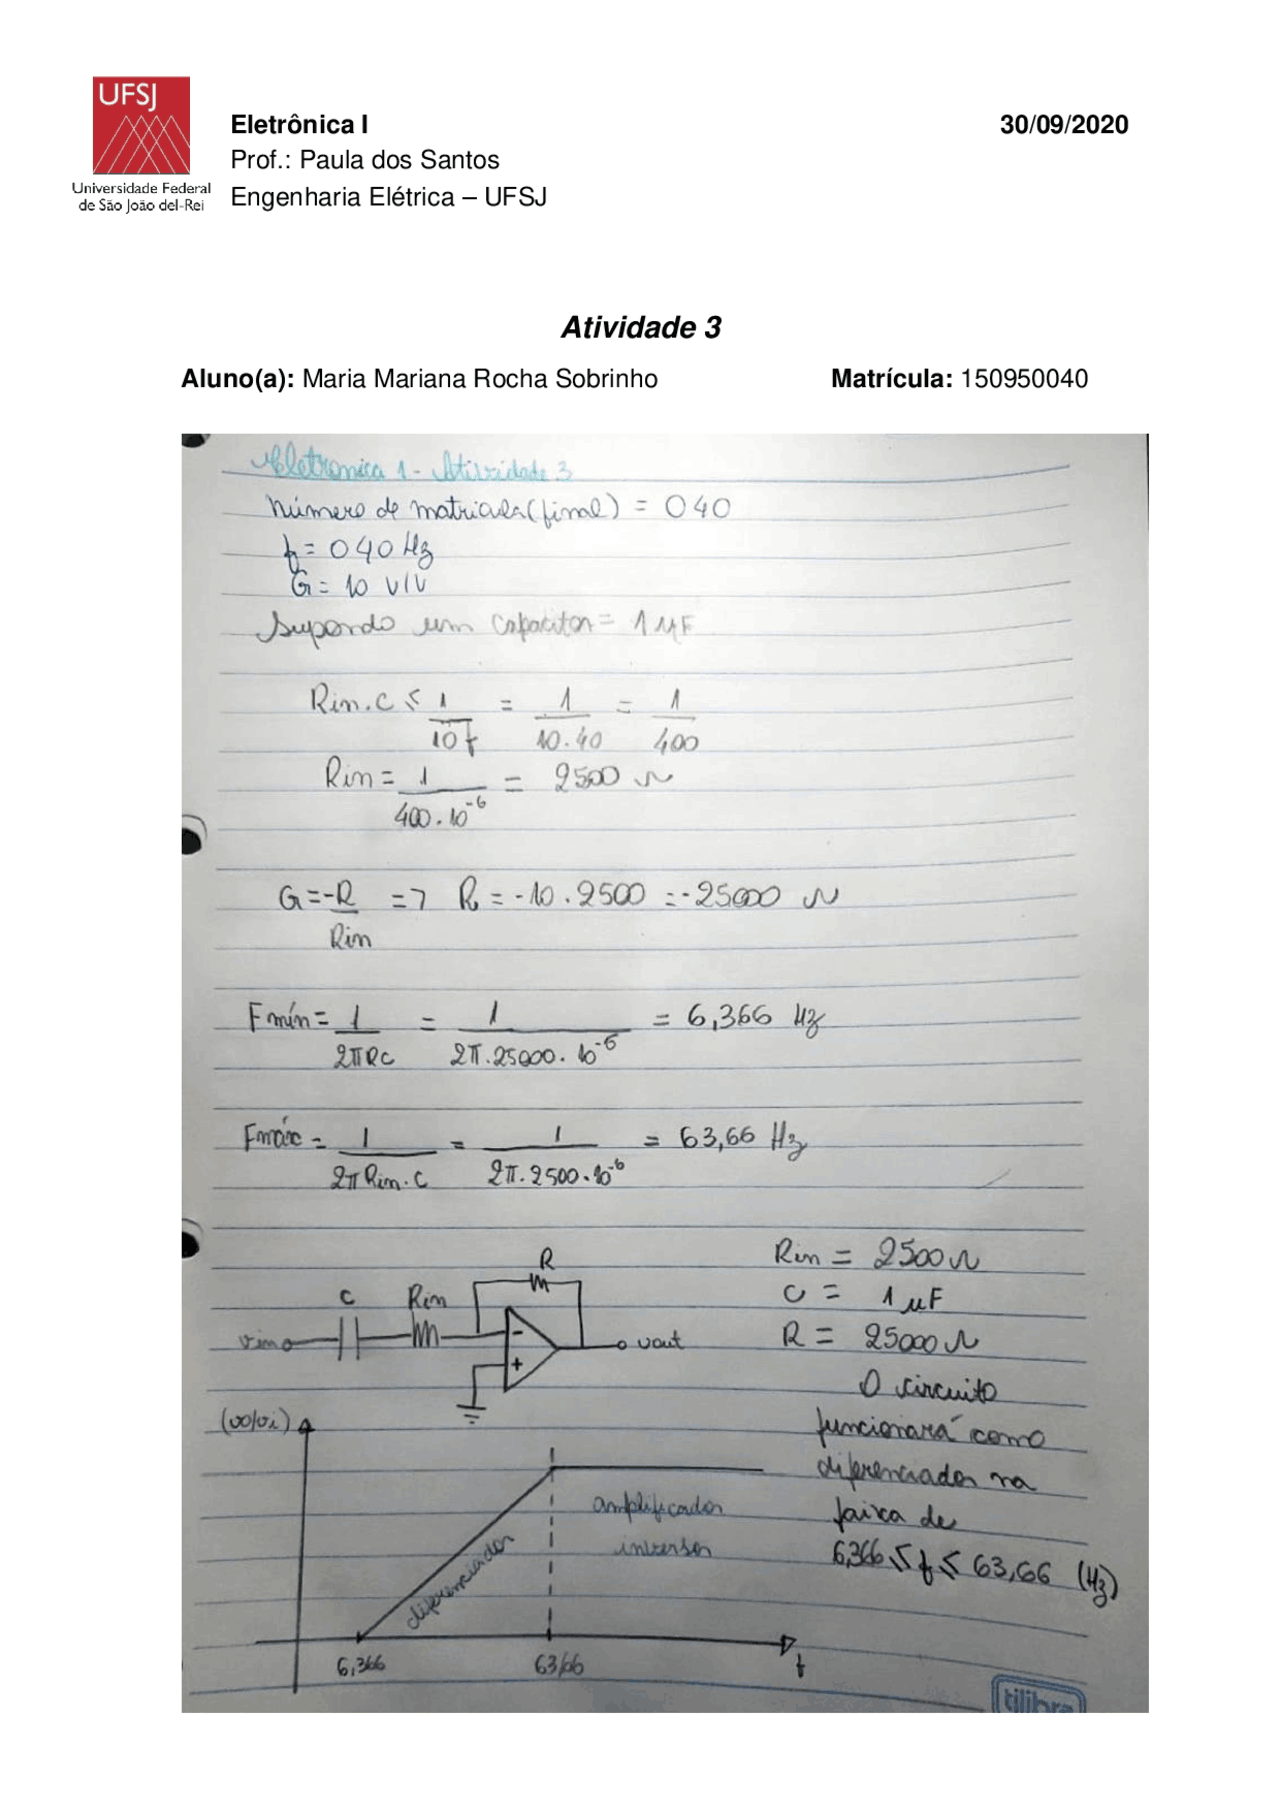 UFSJ
Universidade Federal
de São João del-Rei
Eletrônica I
30/09/2020
Prof.: Paula dos Santos
Engenharia Elétrica – UFSJ
Atividade 3
Aluno(a): Maria Mariana Rocha Sobrinho
Matrícula: 150950040
Eletronica 1 - Atividade 3
Número de matricula (final) = 040
f = 040 Hz
G = 10 V/V
Supondo um capacitor = 1 µF
Rin.C ≤ 1/10f = 1/10.40 = 1/400
Rin = 1/400.10^-6 = 2500 Ω
G = -R/Rin => R = -10.2500 = -25000 Ω
Fmín = 1/2πRC = 1/2π.25000.10^-6 = 6,366 Hz
Fmáx = 1/2πRin.C = 1/2π.2500.10^-6 = 63,66 Hz
R
C
Rin
vin
-
+
vout
Rin = 2500 Ω
C = 1 µF
R = 25000 Ω
O circuito
funcionará como
diferenciador na
faixa de
6,366 ≤ f ≤ 63,66 (Hz)
(vo/vi)
diferenciador
amplificador
inversor
6,366
63,66
f
tilibra